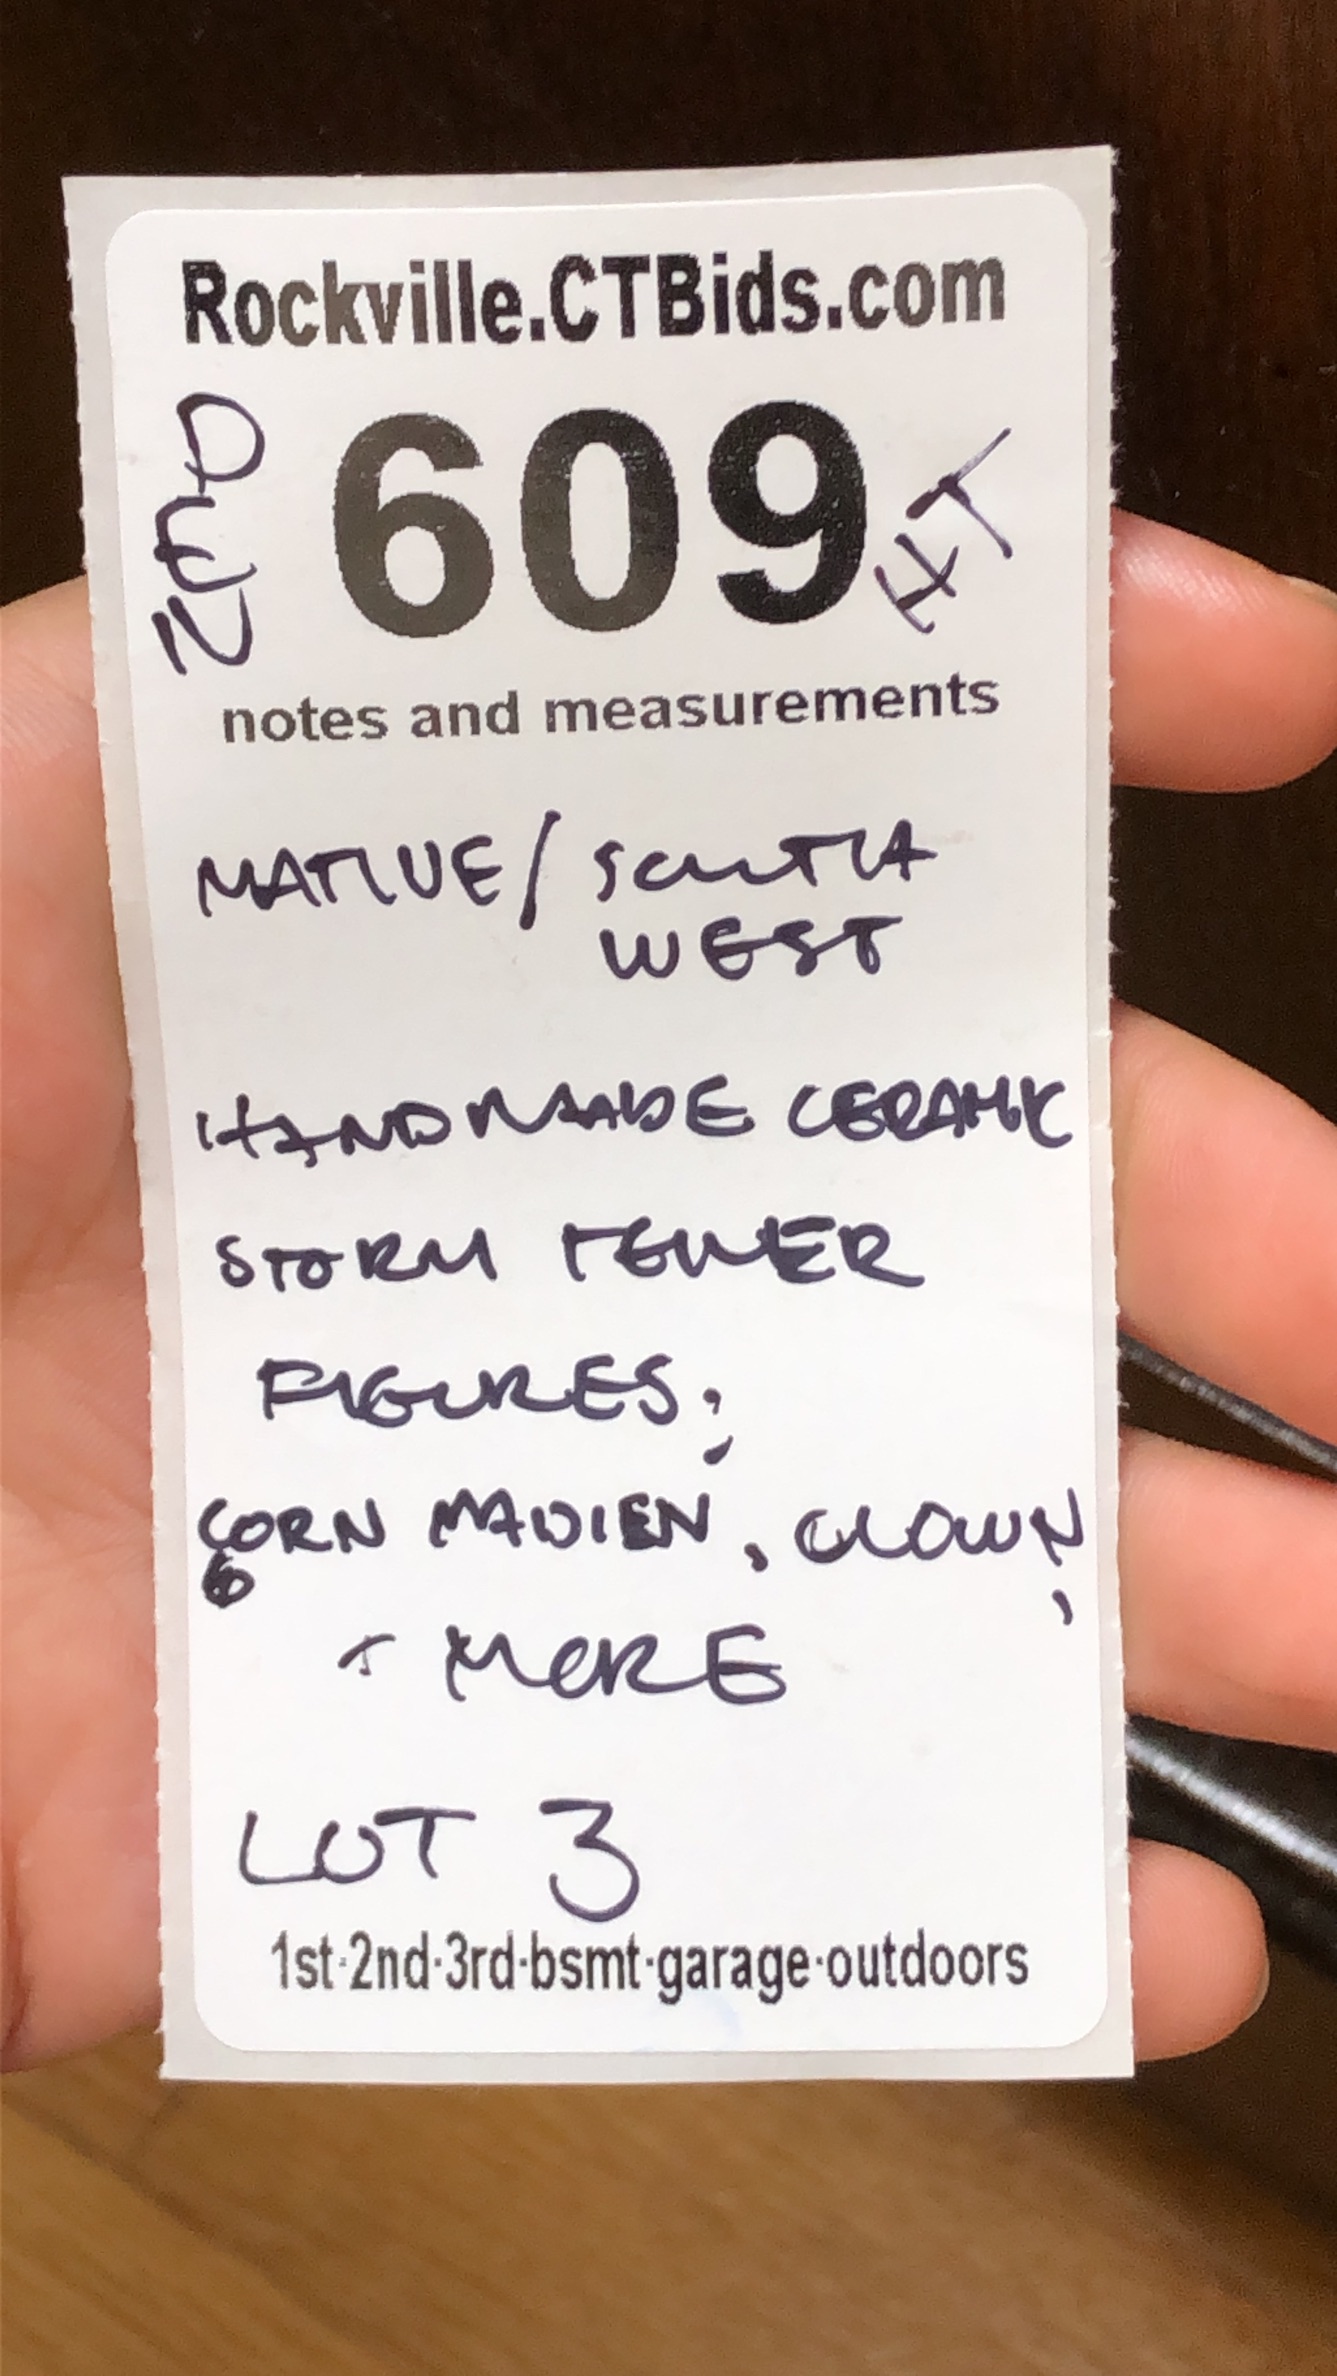 Rockville.CTBids.com
609
HT
notes and measurements
NATIVE/ SOUTH
WEST
HANDMADE CERAMIC
STORM TELLER
FIGURES:
CORN MADIEN, CLOWN,
+ MORE
LOT 3
1st·2nd·3rd·bsmt·garage·outdoors